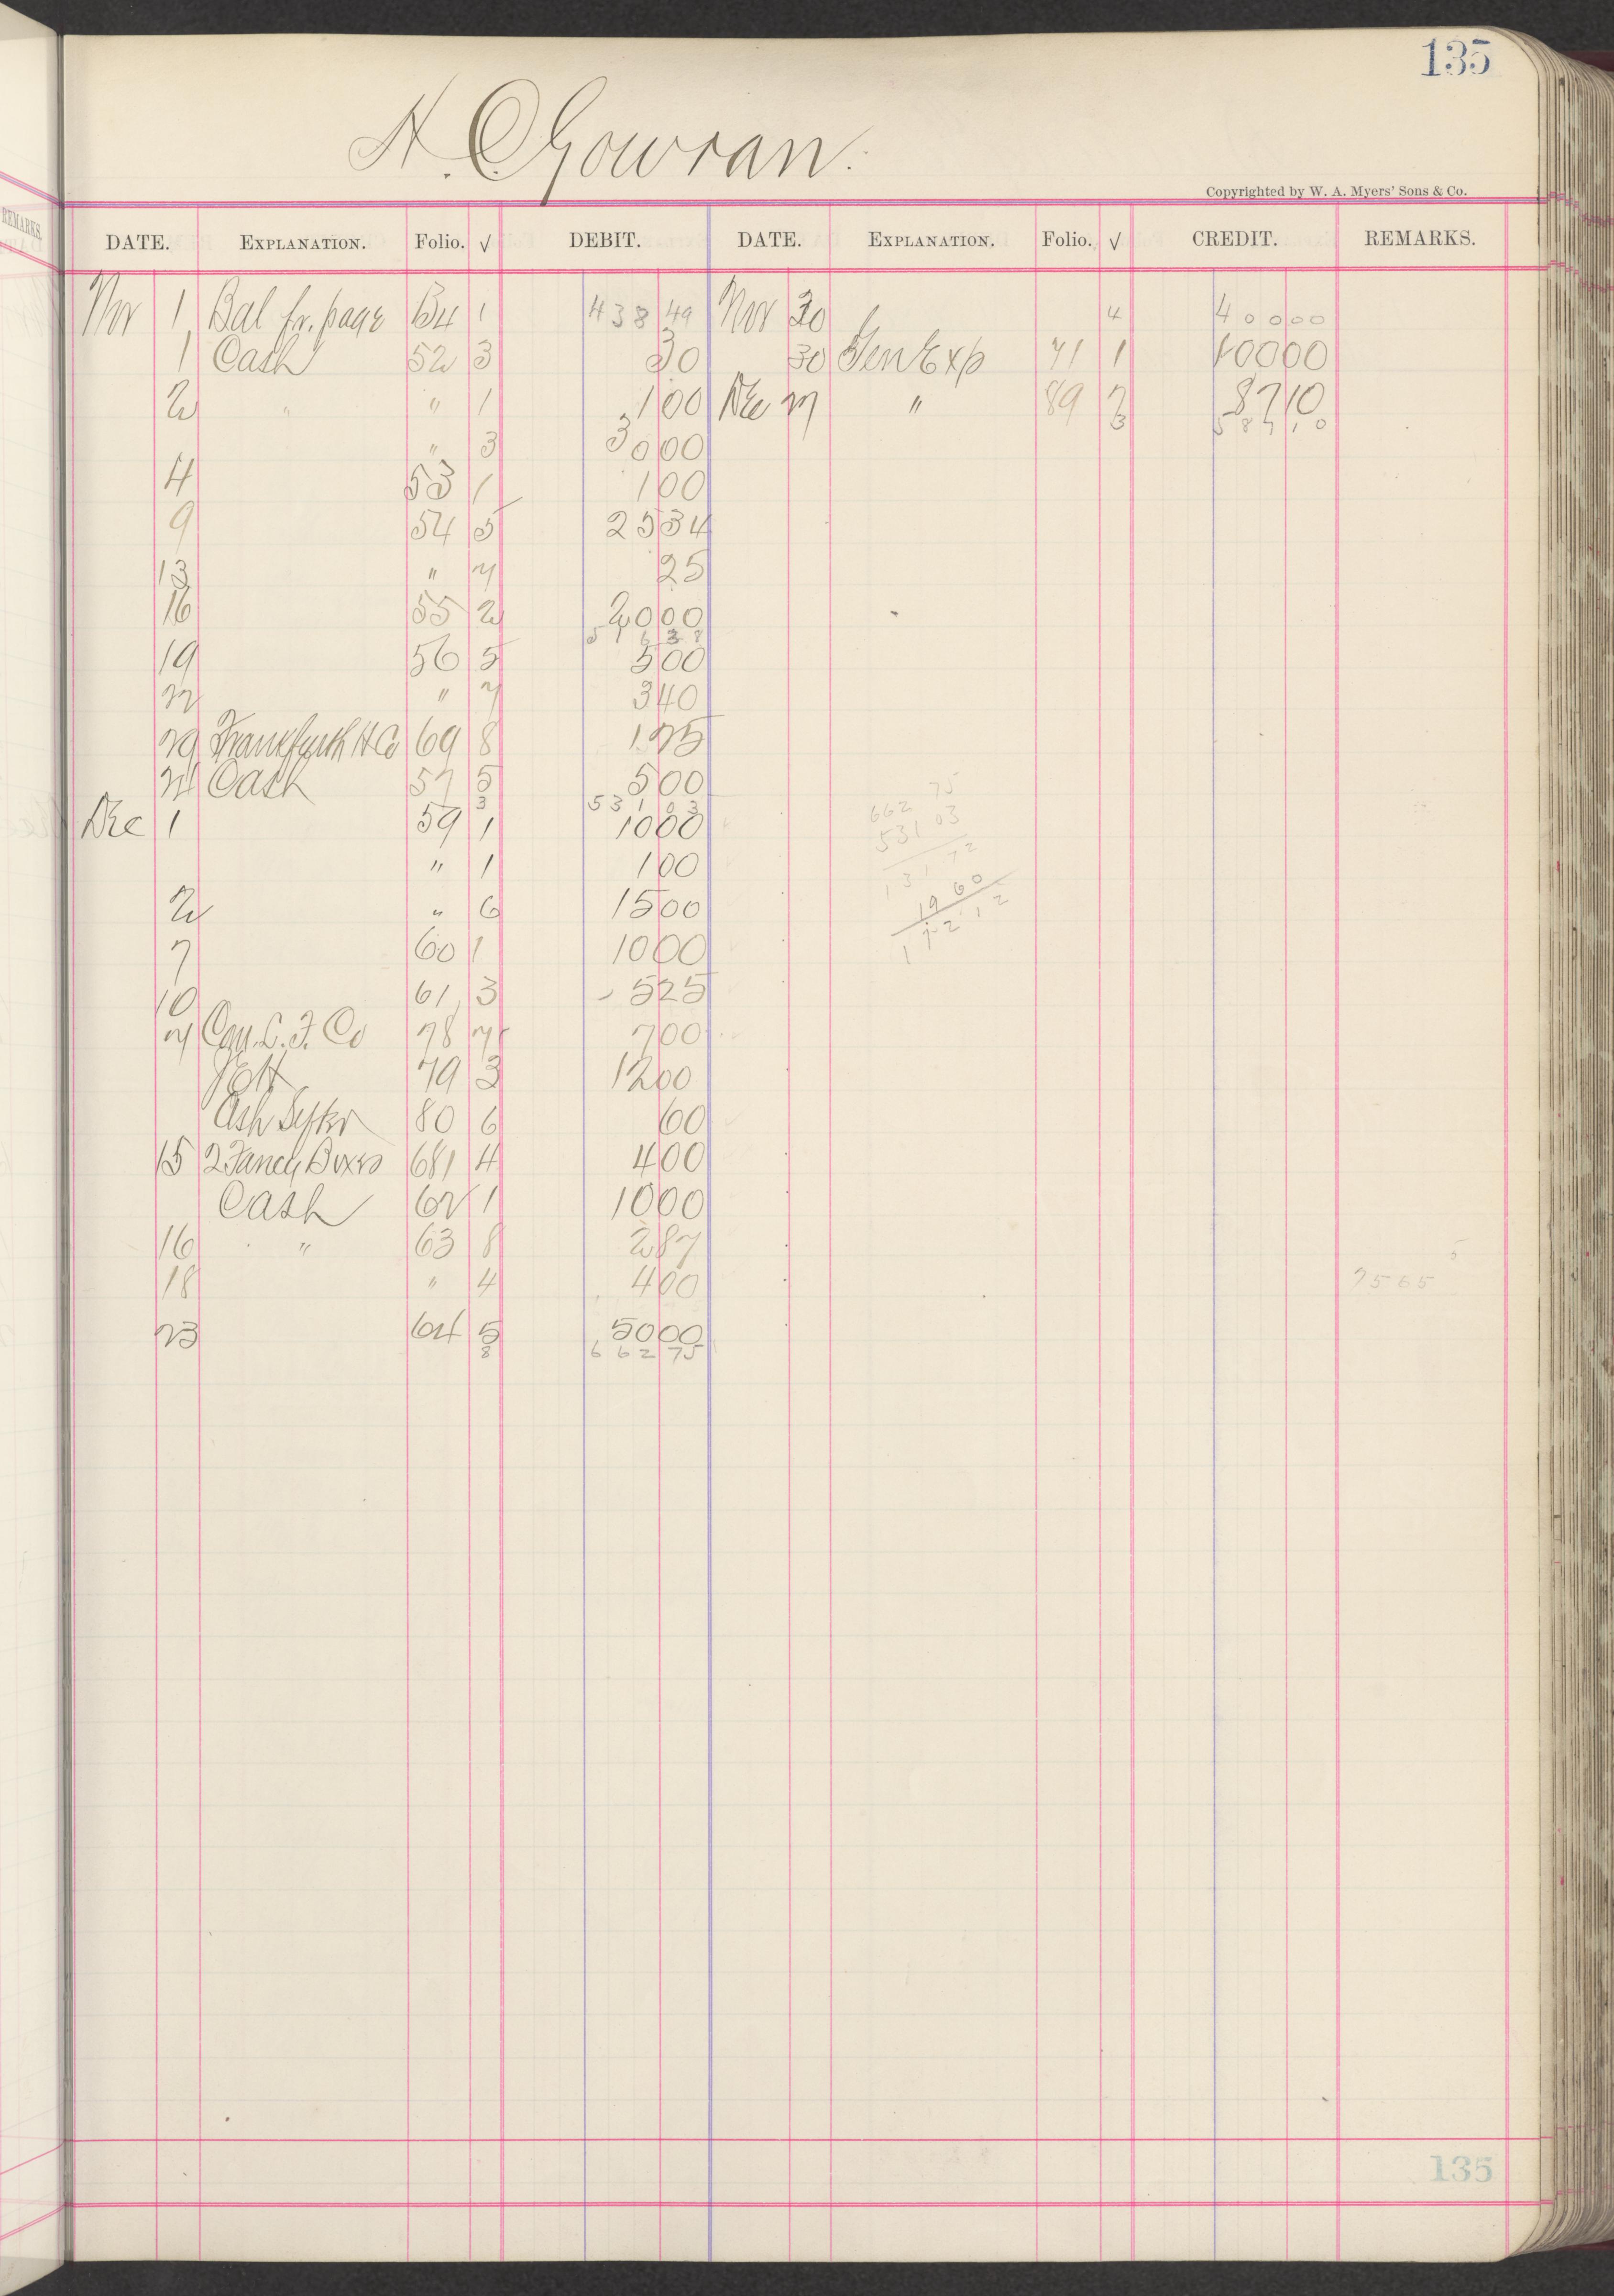 135
H. C. Gowran.
Copyrighted by W. A. Myers' Sons & Co.
REMARKS.
DATE. EXPLANATION. Folio. √ DEBIT. DATE. EXPLANATION. Folio. √ CREDIT. REMARKS.
Nov 1 Bal fr. page 134 1 438 49 Nov 30 4 400 00
1 Cash 52 3 30 30 Gen Exp 71 1 100 00
2 " " 1 1 00 Dec 27 " 89 7 87 10
" 3 30 00 3 587 10
4 53 1 1 00
9 54 5 25 34
13 " 7 25
16 55 2 20 00
5 1 6 38
19 56 5 5 00
22 " 7 3 40
29 Frankfurth H Co 69 8 1 75
24 Cash 57 5 5 00
3 531 03
Dec 1 59 1 10 00
" 1 1 00
2 " 6 15 00
7 60 1 10 00
10 61 3 5 25
7 00
79 3 12 00
80 6 60
15 2 Fancy Boxes 681 4 4 00
Cash 62 1 10 00
16 " 63 8 2 87
18 " 4 4 00
23 64 5 50 00
8 662 75
662 75
531 03
131 72
19 60
112 12
5
7565
135